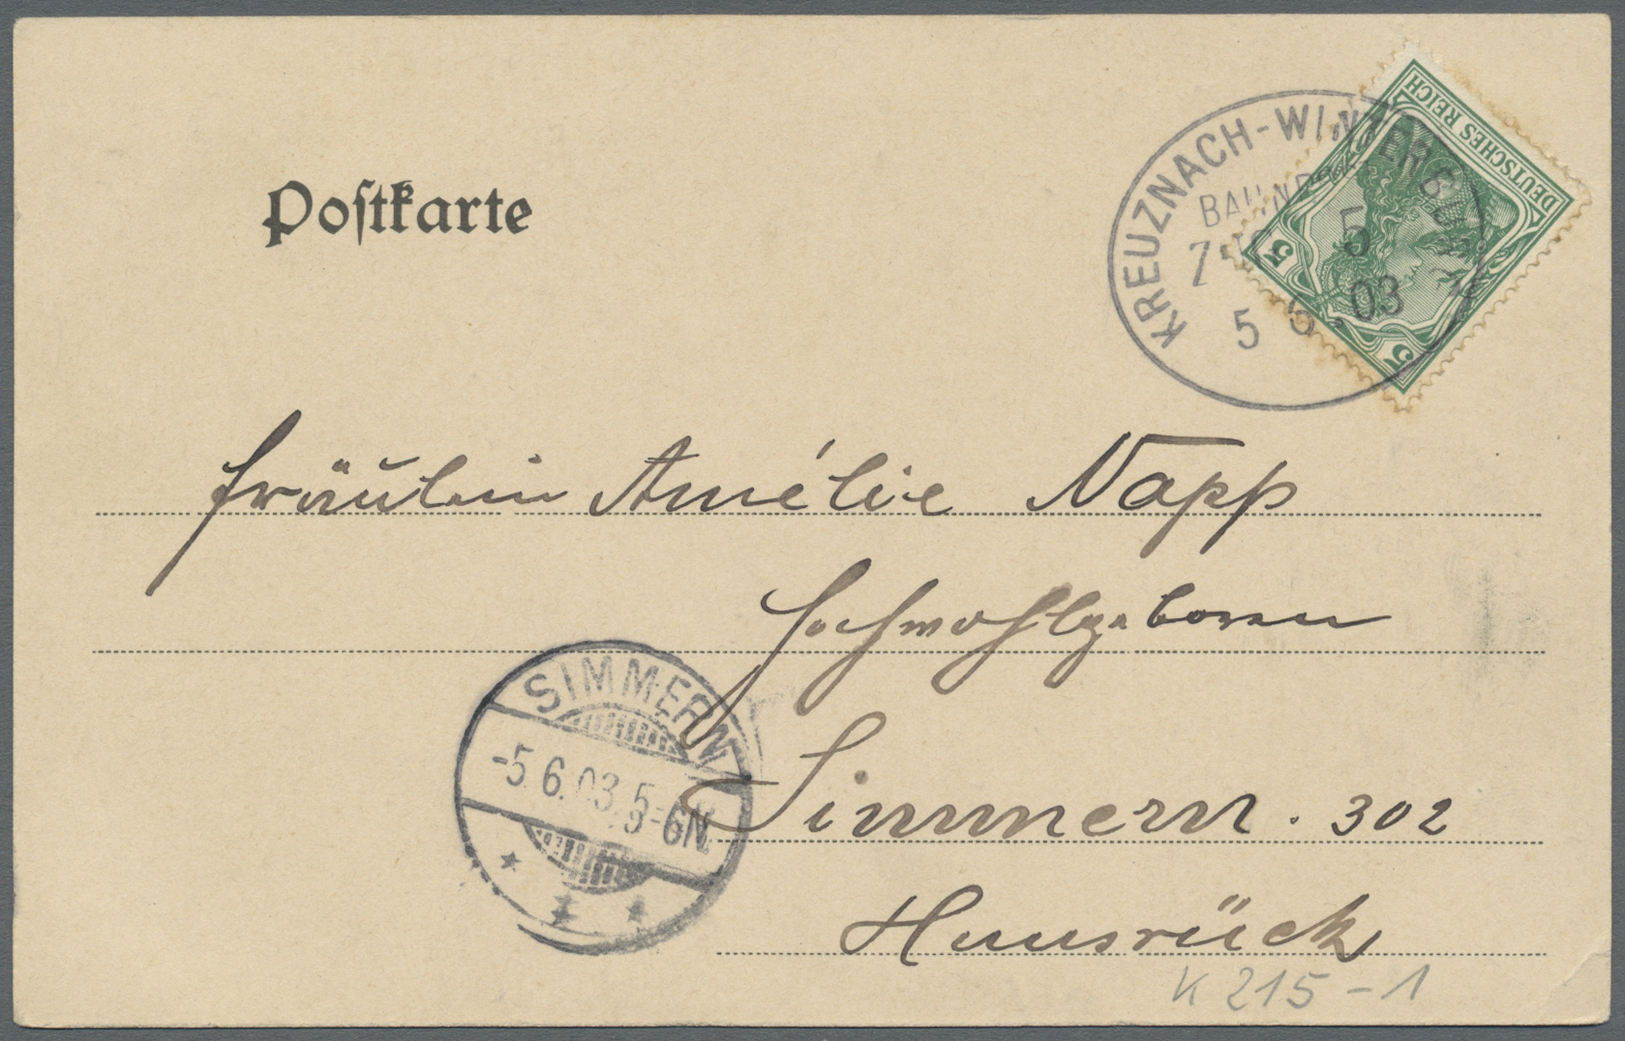 Postkarte
KREUZNACH-WINTERBURG
BAHNPOST
ZUG 5
5 6 03
DEUTSCHES REICH
5
5
Fräulein Amélie Napp
Hochwohlgeboren
SIMMERN
-5.6.03.5-6N.
Simmern. 302
Hunsrück
K 215-1